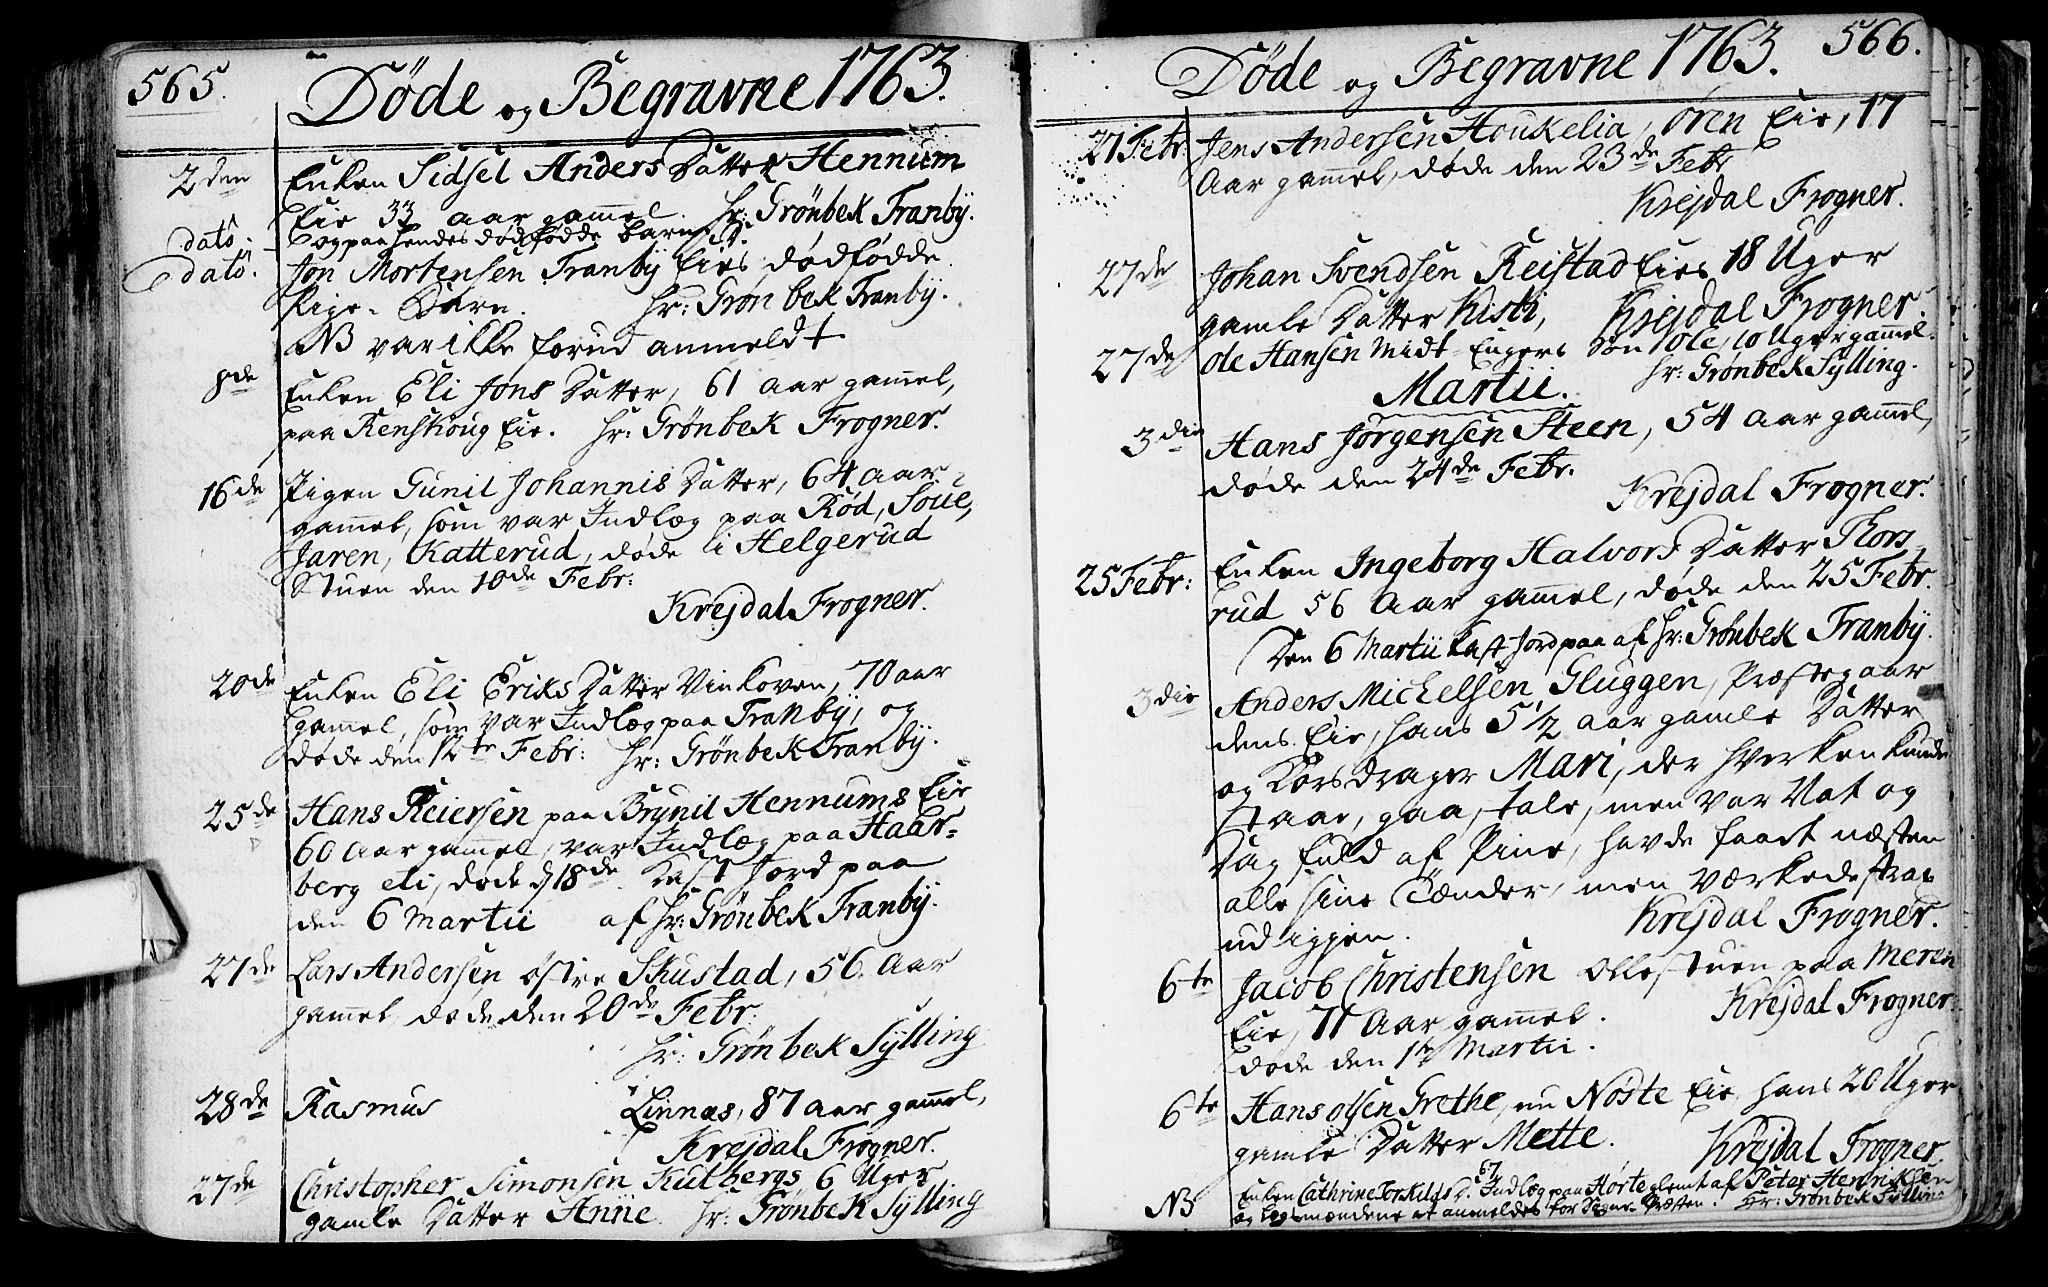 565.
Döde og Begravne 1763.
2den Enken Sidsel Anders Datter Hennum
Eie 33 aar gamel. Hr: Grönbek Tranby.
dato. og paa hendes dödfödde barn
dato. Jon Mortensen Tranby Eies dödfödde
Pige-Barn. Hr: Grönbek Tranbÿ.
NB var ikke forud anmeldt
8de Enken Eli Jons Datter, 61 aar gamel,
paa Renskoug Eie. Hr: Grönbek Frogner.
16de Pigen Gunil Johannis Datter, 64 Aar
gamel, som var Indlæg paa Röd, Soue,
Jaren, Katterud, döde i Helgerud
Stuen den 10de Febr:
Krejdal Frogner.
20de Enken Eli Eriks Datter Vinkoven, 70 aar
gamel, som var Indlæg paa Tranbÿ, og
döde den 12te Febr: Hr: Grönbek Tranbÿ.
25de Hans Reiersen paa Brynil Hennums Eie
60 Aar gamel, var Indlæg paa Haar-
berg eli, döde d 18de. Kast Jord paa
den 6 Martii af Hr: Grönbek Tranbÿ.
27de Lars Andersen östre Skustad, 56. Aar
gamel, döde den 20de Febr.
Hr: Grönbek Sylling
28de Rasmus Linnes, 87 aar gamel,
Krejdal Frogner.
27de Christopher Simonsen Kulbergs 6 Uger
gamle Datter Anne. Hr: Grönbek Sylling
566.
Döde og Begravne 1763.
27 Febr Jens Andersen Houkelia, ören Eie, 17
Aar gamel, döde den 23de Febr
Krejdal Frogner.
27de Johan Svendsen Reistad Eies 18 Uger
gamle Datter Kisti, Krejdal Frogner.
27de Ole Hansen Midt-Engers Sön Ole, 10 Uger gamel.
Hr: Grönbek Sylling.
Martii.
3die Hans Jörgensen Steen, 54 Aar gamel,
döde den 24de Febr.
Krejdal Frogner.
25 Febr: Enken Ingeborg Halvors Datter Thors-
rud 56 Aar gamel, döde den 25 Febr.
Den 6 Martii Kast Jord paa af Hr: Grönbek Tranbÿ.
3die Anders Michelsen Gluggen, Præstegaar
dens Eie, hans 5 1/2 aar gamle Datter
og Korsdrager Mari, der hverken kunde
staae, gaa, tale, men var Nat og
Dag fuld af Pine, havde faaet næsten
alle sine Tænder, men værkede strax
ud igjen. Krejdal Frogner.
6te Jacob Christensen Ollestuen paa Meren
Eie, 71 Aar gamel. Krejdal Frogner.
döde den 1te Martii.
6te Hans Olsen Grethe, nu Nöste Eie, hans 20 Uger
gamle Datter Mette. Krejdal Frogner
NB Enken Cathrine Torkilds D. 67 Indlæg paa Hörte glemt af Peter Hendriksen
og Lægsmændene at anmeldes for Sogne Præsten. Hr: Grönbek Sylling